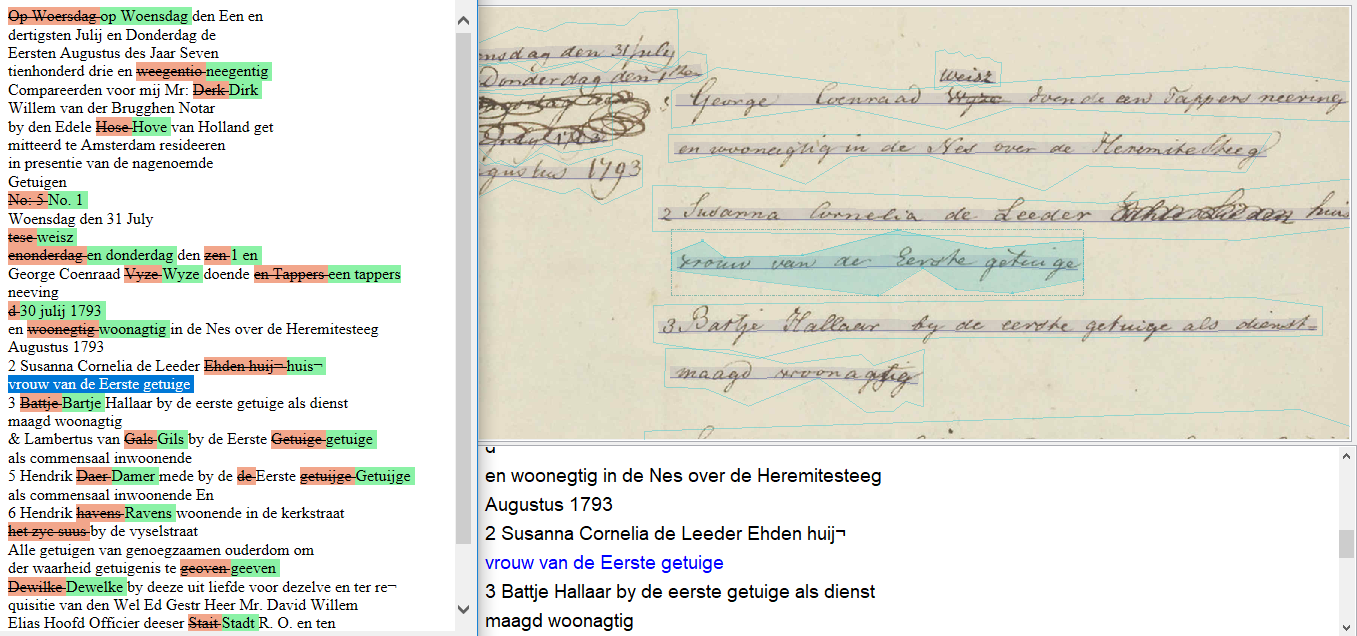 Op Woersdag op Woensdag den Een en
dertigsten Julij en Donderdag de
Eersten Augustus des Jaar Seven
tienhonderd drie en weegentio neegentig
Compareerden voor mij Mr: Derk Dirk
Willem van der Brugghen Notar
by den Edele Hose Hove van Holland get
mitteerd te Amsterdam resideeren
in presentie van de nagenoemde
Getuigen
No: 5 No. 1
Woensdag den 31 July
tese weisz
enonderdag en donderdag den zen 1 en
George Coenraad Vyze Wyze doende en Tappers een tappers
neeving
d 30 julij 1793
en woonegtig woonagtig in de Nes over de Heremitesteeg
Augustus 1793
2 Susanna Cornelia de Leeder Ehden huij¬ huis¬
vrouw van de Eerste getuige
3 Battje Bartje Hallaar by de eerste getuige als dienst
maagd woonagtig
& Lambertus van Gals Gils by de Eerste Getuige getuige
als commensaal inwoonende
5 Hendrik Daer Damer mede by de de Eerste getuijge Getuijge
als commensaal inwoonende En
6 Hendrik havens Ravens woonende in de kerkstraat
het zyc suus by de vyselstraat
Alle getuigen van genoegzaamen ouderdom om
der waarheid getuigenis te geoven geeven
Dewilke Dewelke by deeze uit liefde voor dezelve en ter re¬
quisitie van den Wel Ed Gestr Heer Mr. David Willem
Elias Hoofd Officier deeser Stait Stadt R. O. en ten
ensdag den 31 July
Donderdag den 1sten
July 1793
gustus 1793
weisz
George Coenraad Wyze doende een Tappers neering
en woonegtig in de Nes over de Heremitesteeg
2 Susanna Cornelia de Leeder huis
vrouw van de Eerste getuige
3 Bartje Hallaar by de eerste getuige als dienst=
maagd woonagtig
d
en woonegtig in de Nes over de Heremitesteeg
Augustus 1793
2 Susanna Cornelia de Leeder Ehden huij¬
vrouw van de Eerste getuige
3 Battje Hallaar by de eerste getuige als dienst
maagd woonagtig